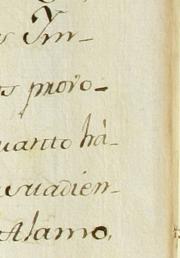 s Im-
s provo-
uanto há-
suadien-
Alamo,